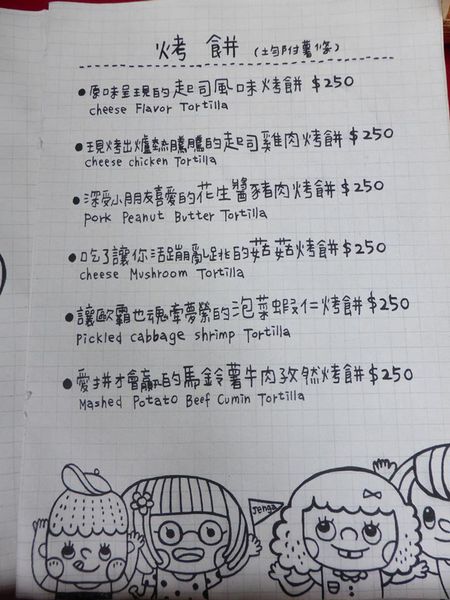 烤餅(均附薯條)
●原味呈現的起司風味烤餅$250
cheese Flavor Tortilla
●現烤出爐熱騰騰的起司雞肉烤餅$250
cheese chicken Tortilla
●深受小朋友喜愛的花生醬豬肉烤餅$250
Pork Peanut Butter Tortilla
●吃了讓你活蹦亂跳的菇菇烤餅$250
cheese Mushroom Tortilla
●讓歐霸也魂牽夢縈的泡菜蝦仁烤餅$250
Pickled cabbage shrimp Tortilla
●愛拼才會贏的馬鈴薯牛肉孜然烤餅$250
Mashed Potato Beef Cumin Tortilla
jenga